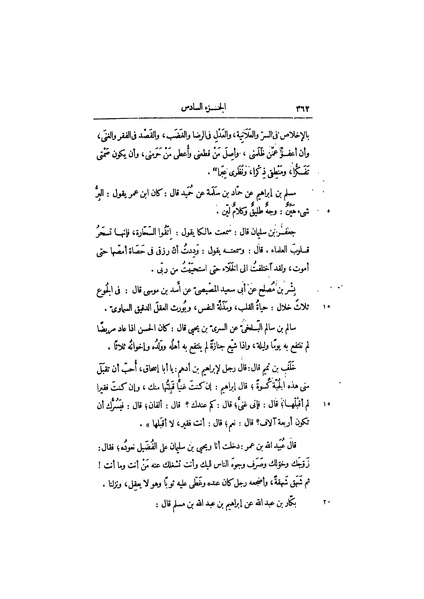 ٣٦٢ الجـــزء السادس
بالإخلاص فى السرّ والعلانية، والعَدْل فى الرضا والغَضَب، والقَصْد فى الفقر والغنى،
وأن أعفوَ عمّن ظلمنى ، وأصِلَ مَنْ قطعنى وأُعطى مَنْ حَرَمنى، وأن يكون صَمْتى
تفَكُّرًا، ومَنْطِقى ذِكْرًا، ونَظَرى عِبَرًا" .
مسلم بن إبراهيم عن حمّاد بن سَلَمة عن حُمَيد قال : كان ابن عمر يقول : البِرُّ
شىء هَيِّنٌ : وجهٌ طليقٌ وكلامٌ ليّن . ٥
جعفر بن سليمان قال : سمعت مالكا يقول : اتقوا السّحّارة، فإنها تسحَرُ
قلوبَ العلماء . قال : وسمعته يقول : ودِدتُ أن رزقى فى حَصَاة أمَصُّها حتى
أموت، ولقد اختلفتُ الى الخَلاء حتى استحييتُ من ربّى .
بِشْر بن مُصلِح عن أبى سعيد المصّيصىّ عن أسد بن موسى قال : فى الجوع
ثلاثُ خلال : حياةُ القلب، ومَذَلّة النفس، ويُورث العقلَ الدقيقَ السماوىّ . ١٠
سالم بن سالم البَلْخىّ عن السرىّ بن يحيى قال : كان الحسن اذا عاد مريضًا
لم نتفع به يومًا وليلة، واذا شيّع جنازةً لم ينتفع به أهلُه وولدُه وإخوانُه ثلاثًا .
خَلَف بن تميم قال: قال رجل لإبراهيم بن أدهم: يا أبا إسحاق، أُحبّ أن تقبَلَ
منّى هذه الجُبّة كُسوةً ؛ قال إبراهيم : إن كنتَ غنيًّا قبِلتُها منك ، وإن كنت فقيرا
لم أقبَلْها؛ قال : فإنى غنىٌّ؛ قال : كم عندك ؟ قال : ألفان؛ قال : فيَسُرُّك أن ١٥
تكون أربعةَ آلاف؟ قال : نعم؛ قال : أنت فقير، لا أقبَلُها » .
قال عُبَيد الله بن عمر: دخلت أنا ويحيى بن سليمان على الفُضَيل نعوده؛ فقال:
زوّجك وخوّلك وصَرَف وجوهَ الناس اليك وأنت تشغلك عنه مَنْ أنت وما أنت !
ثم شَهَق شَهقةً، وأضجعه رجل كان عنده وغطّى عليه ثوبًا وهو لا يعقِل، ونزلنا .
بكّار بن عبد الله عن إبراهيم بن عبد الله بن مسلم قال : ٢٠